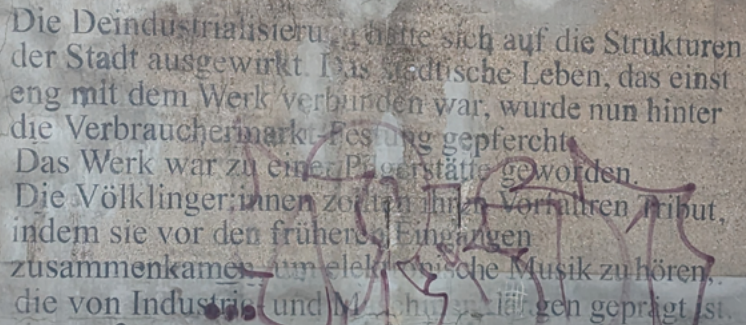 Die Deindustrialisierung hatte sich auf die Strukturen
der Stadt ausgewirkt. Das städtische Leben, das einst
eng mit dem Werk verbunden war, wurde nun hinter
die Verbrauchermarkt-Festung gepfercht.
Das Werk war zu einer Pilgerstätte geworden.
Die Völklinger:innen zollten ihren Vorfahren Tribut,
indem sie vor den früheren Eingängen
zusammenkamen, um elektronische Musik zu hören,
die von Industrie und Maschinenklängen geprägt ist.